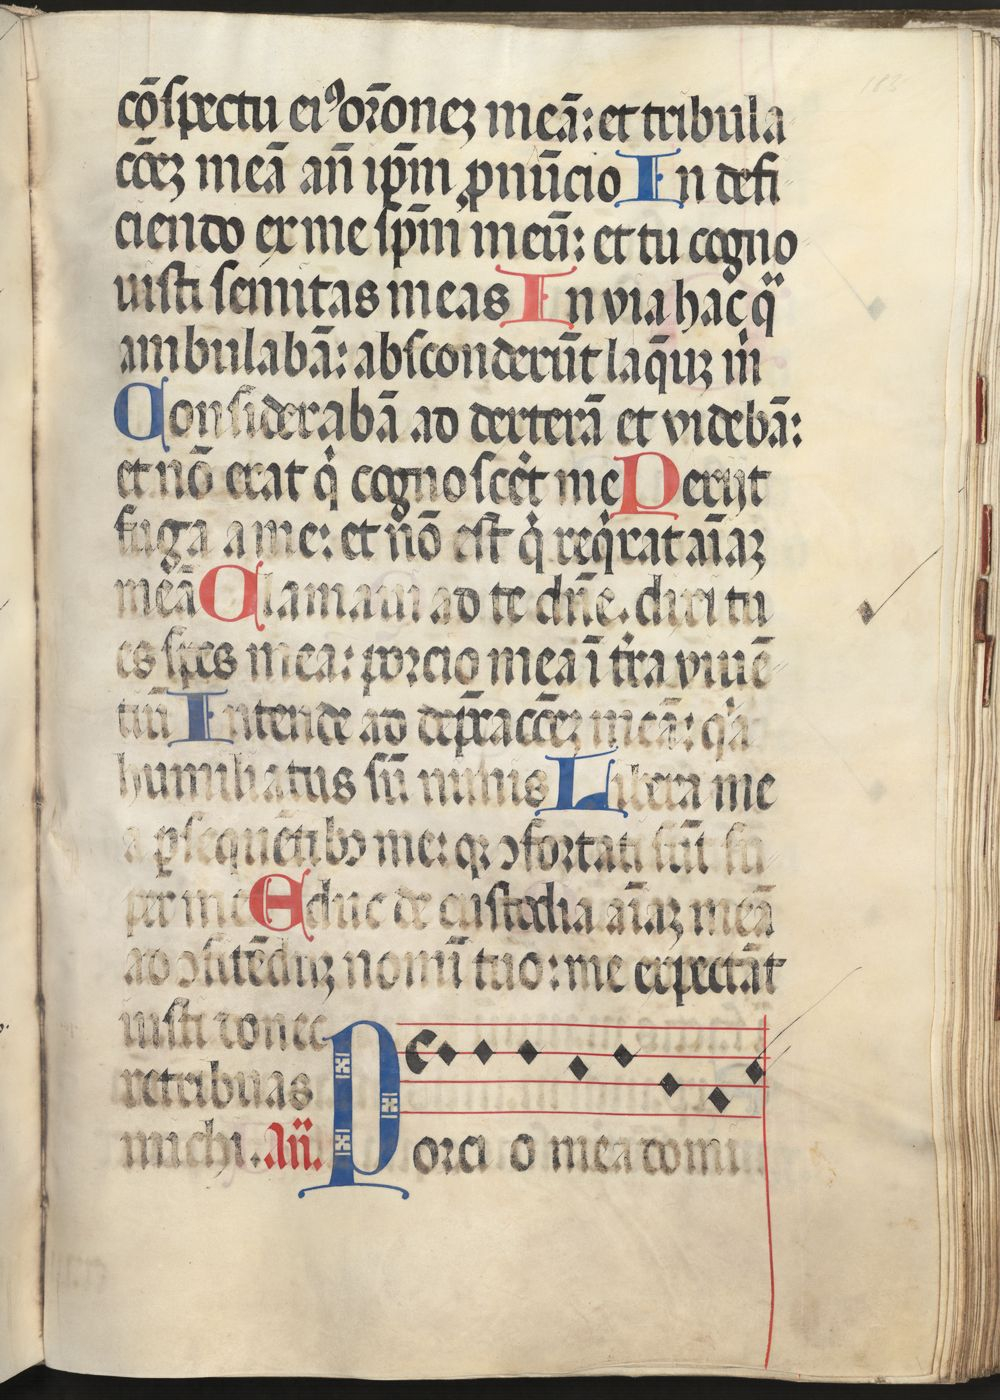 cōspectu ei⁹ or̄onez meā: et tribula
cōez meā an̄ ip̄m pnūcio In defi
ciendo ex me sp̄m meū: et tu cogno
uisti semitas meas In via hac q̈
ambulabā: absconderūt laq̄uz m̄
Considerabā ad dexterā et videbā:
et nō erat q̇ cognoscēt me Perijt
fuga a me: et nō est q̇ req̇rat aīaz
meā Clamaui ad te dn̄e. dixi tu
es spes mea: porcio mea ī tr̄a viuē
tiū Intende ad dep̄cacōez meā: q̇a
humiliatus sū nimis Libera me
a ꝑsequētibꝫ me: qꝛ ↄfortati sūt su
per me Educ de custodia aīaz meā
ad ↄfitēduz nomī tuo: me expectāt
iusti donec
retribuas
michi. An̄. Porci o mea domi
183